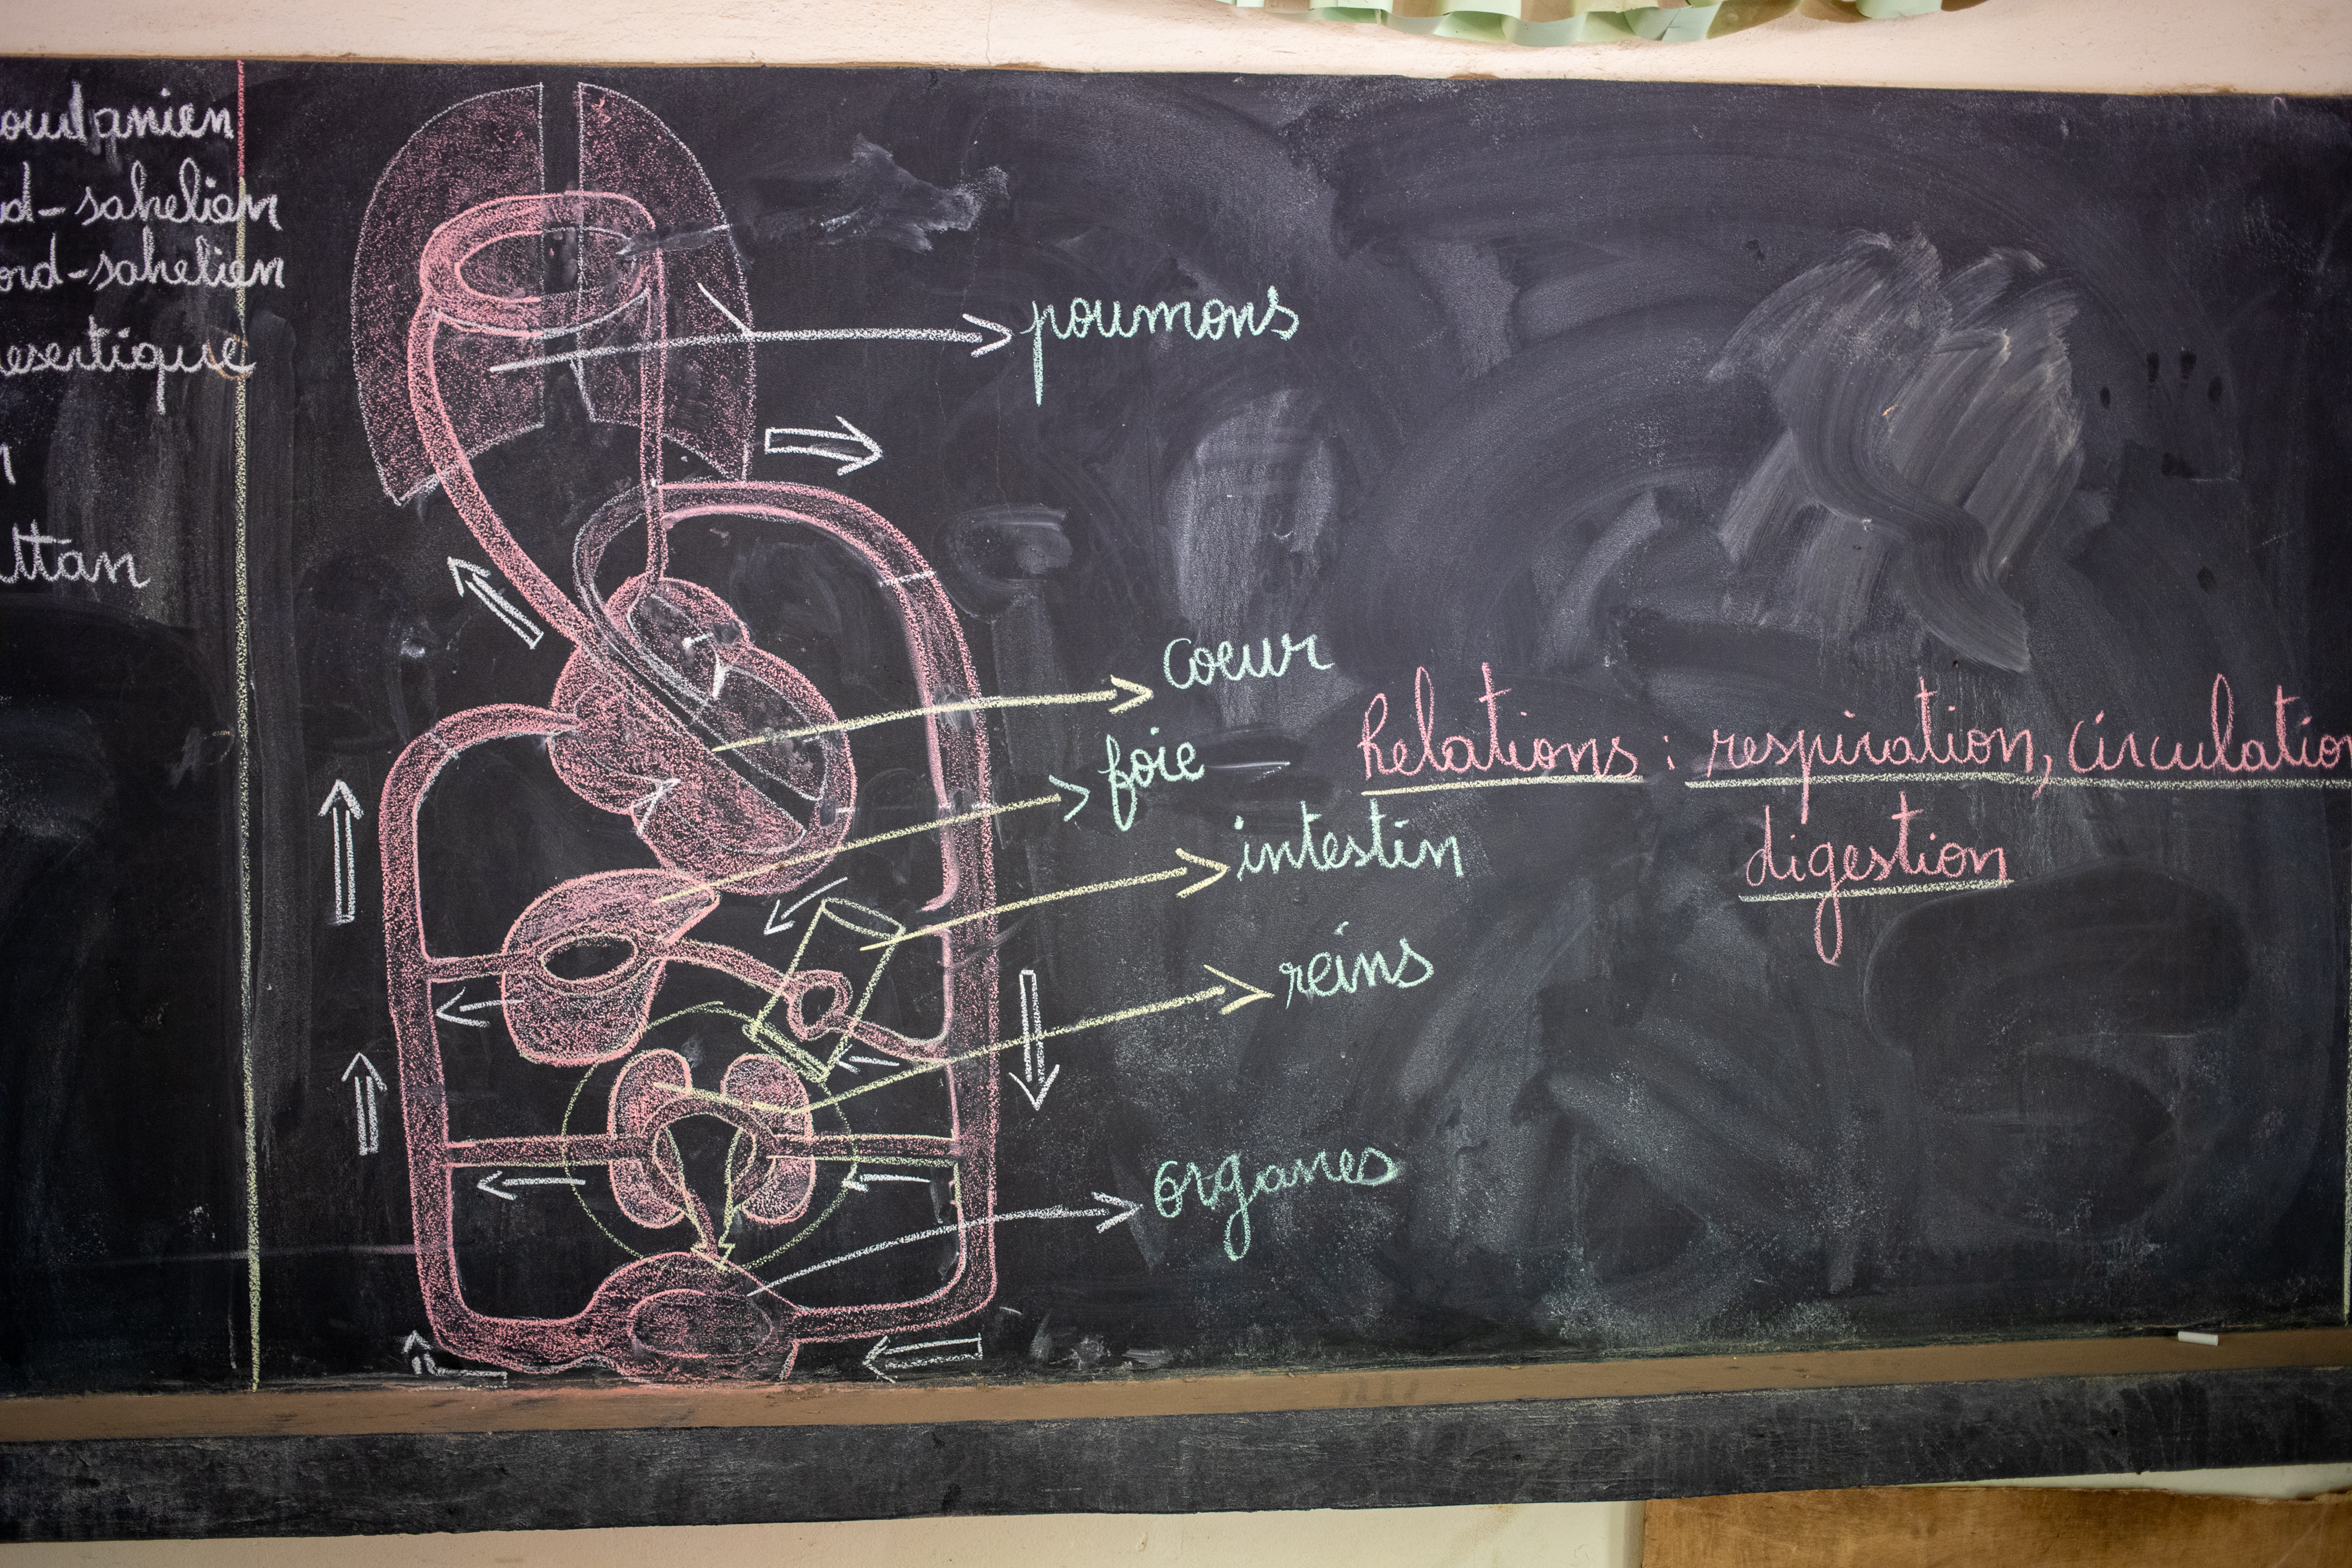 oudanien
d-sahelien
ord-sahelien
esertique
ttan
poumons
coeur
foie
intestin
reins
organes
Relations : respiration, circulatio
digestion